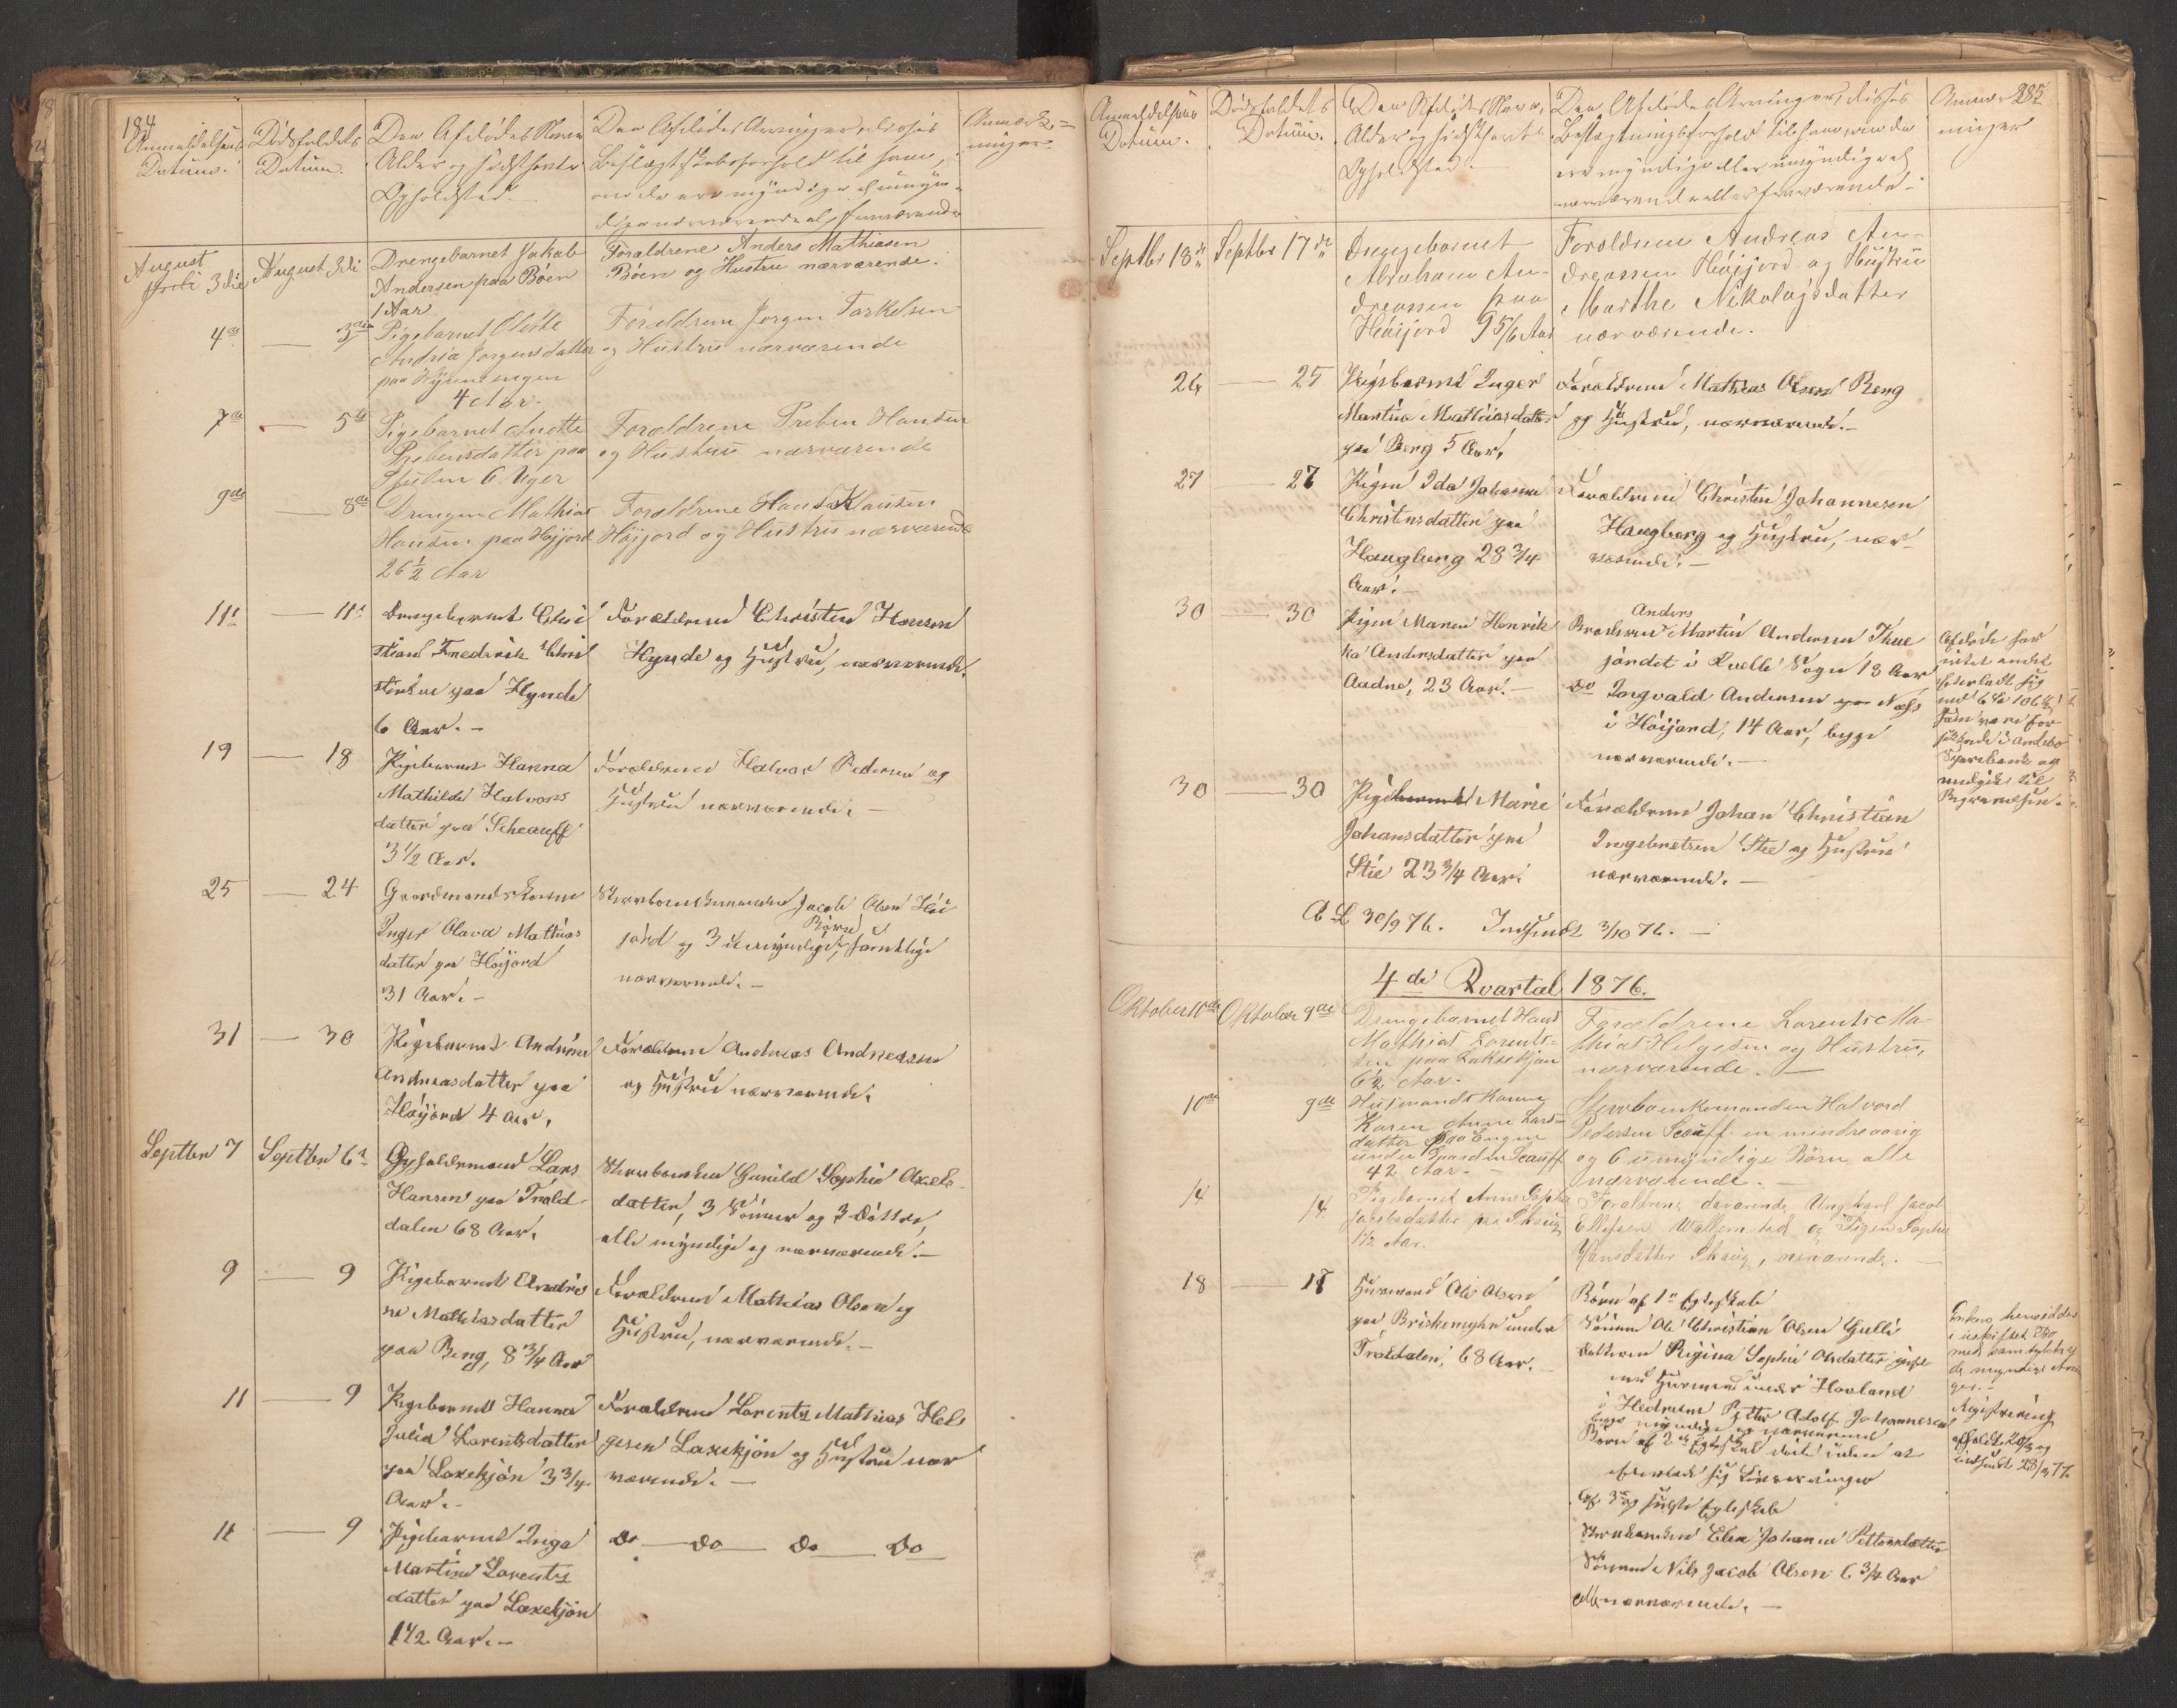 184
Anmeldelsens
Datum.
Dødsfaldets
Datum.
Den Afdødes Navn
Alder og sidst havte
Opholdsted.
Den Afdødes Arvinger, disses
Beslægtskabsforhold til ham,
om de ere myndige el umyn-
dige nærværende el fraværende
Anmærk-
ninger
August
3die
August 3die
Drengebarnet Jakob
Andersen paa Böen
1 Aar
Forældrene Anders Mathiasen
Böen og Hustru nærværende.
4de
— 3die
Pigebarnet
Andria Jørgensdatter
paa
4 Aar.
Forældrene Jørgen Torkelsen
og Hustru nærværende
7de
— 5te
Pigebarnet Anette
Prebensdatter paa
6 Uger
Forældrene Preben Hansen
og Hustru nærværende
9de
— 8de
Drengen Mathias
Hansen paa Höjjord
26 1/2 Aar
Forældrene Hans Hansen
Höjjord og Hustru nærværende
11te
— 11te
Drengebarnet Chri
stian Fredrik Chri
stensen paa Hynde
6 Aar. -
Forældrene Christen Hansen
Hynde og Hustru, nærværende.
19
— 18
Pigebarnet Hanna
Mathilde Halvors
datter paa Scheauff
3 1/2 Aar.
Forældrene Halvor Pedersen og
Hustru nærværende. —
25
— 24
Gaardmandskone
Inger Olava Mathias
datter paa Höijord
31 Aar. -
Stervboenkemanden Jacob Olsen Höi
Børn
jord og 3 umyndige, samtlige
nærværende. —
31
— 30
Pigebarnet Andrine
Andreasdatter paa
Höijord 4 Aar.
Forældrene Andreas Andreasen
og Hustru nærværende.
Septbr 7
Septbr 6te
Opholdsmand Lars
Hansen paa Trold
dalen 68 Aar.
Stervboenken Gunild Sophie Axels-
datter, 3 Sönner og 3 Döttre,
alle myndige og nærværende. —
9
— 9
Pigebarnet Andri
ne Mathiasdatter
paa Berg, 8 3/4 Aar
Forældrene Mathias Olsen og
Hustru, nærværende. —
11
— 9
Pigebarnet Hanna
Julia Lorentsdatter
paa Laxekjön 3 3/4
Aar. -
Forældrene Lorents Mathias Hel
gesen Laxekjön og Hustru nær
værende. —
11
— 9
Pigebarnet Inga
Martine Lorents
datter paa Laxekjön
1 1/2 Aar. -
Do — Do — Do — Do
Anmeldelsens
Datum.
Dødsfaldets
Datum.
Den Afdødes Navn,
Alder og sidst havte
Opholdsted.
Den Afdødes Arvinger, disses
Beslægtningsforhold til ham, om de
ere myndige eller umyndige el
nærværende eller fraværende.
Anmærk
ninger
285
Septbr 18de
Septbr 17de
Drengebarnet
Abraham An-
dreassen paa
Höijord 9 5/6 Aar
Forældrene Andreas An-
dreassen Höijord og Hustru
Marthe Nikolajsdatter
nærværende.
26
— 25
Pigebarnet Inger
Martine Mathiasdatter
paa Berg 5 Aar,
Forældrene Mathias Olsen Berg
og Hustru, nærværende. —
27
— 27
Pigen Ida Johanne
Christensdatter paa
Haugberg 28 3/4
Aar. -
Forældrene Christen Johannesen
Haugberg og Hustru, nær-
værende. —
30
— 30
Pigen Maren Henrik
ka Andersdatter paa
Aadne, 23 Aar. —
Anders
Brødrene Martin Andersen
jordet i Sogn 18 Aar
Do Torgvald Andersen paa Næss
i Höijord, 14 Aar, begge
nærværende. —
Afdøde har
intet andet
efterladt sig
end
som var for
i Andebo
Sparebank og
medgik til
Begravelsen.
30
— 30
Pigen Marie
Johansdatter paa
Stie 23 3/4 Aar.
Forældrene Johan Christian
Ingebretsen Stie og Hustru
nærværende. —
A L 30/9 76. Indsendt 3/10 76. —
4de Qvartal 1876.
Oktober 10de
Oktober 9de
Drengebarnet Hans
Mathias Lorents-
sen paa Laksekjøn
6 1/2 Aar.
Forældrene Lorents Ma-
thias Helgesen og Hustru,
nærværende. —
10de
9de
Husmandskone
Karen Anne Lars-
datter paa Engen
under Gaarden Scauff
42 Aar. -
Stervboenkemanden Halvord
Pedersen Scauff en mindreaarig
og 6 umyndige Børn alle
nærværende. —
14
14
Pigebarnet Anne Sophie
Jacobsdatter paa Skaug
1 1/2 Aar.
Forældrene, daværende Ungkarl Jacob
Ellefsen Wallernstad og Pigen Sophie
Hansdatter Skaug, nærværende. —
18
— 17
Husmand Ole Olsen
paa Briskemyhr under
Troldalen, 68 Aar. -
Börn af 1ste Egteskab
Sönnen Ole Christian Olsen Gulli
Datteren Regina Sophie Olsdatter gift
med Husmand under Hoeland
i Hedrum Petter Adolf Johannesen
begge myndige og nærværende
Börn af 2det Egteskab døde uden at
efterlade sig Livsarvinger
Af 3die og sidste Egteskab
Stervboenken Elen Johanne Pettersdatter
Sönnen Nils Jacob Olsen 6 3/4 Aar
alle nærværende. —
Enken hensidder
i uskiftet Bo
med samtykke af
de myndige Arvin
ger. -
Registrering
afholdt og
indsendt